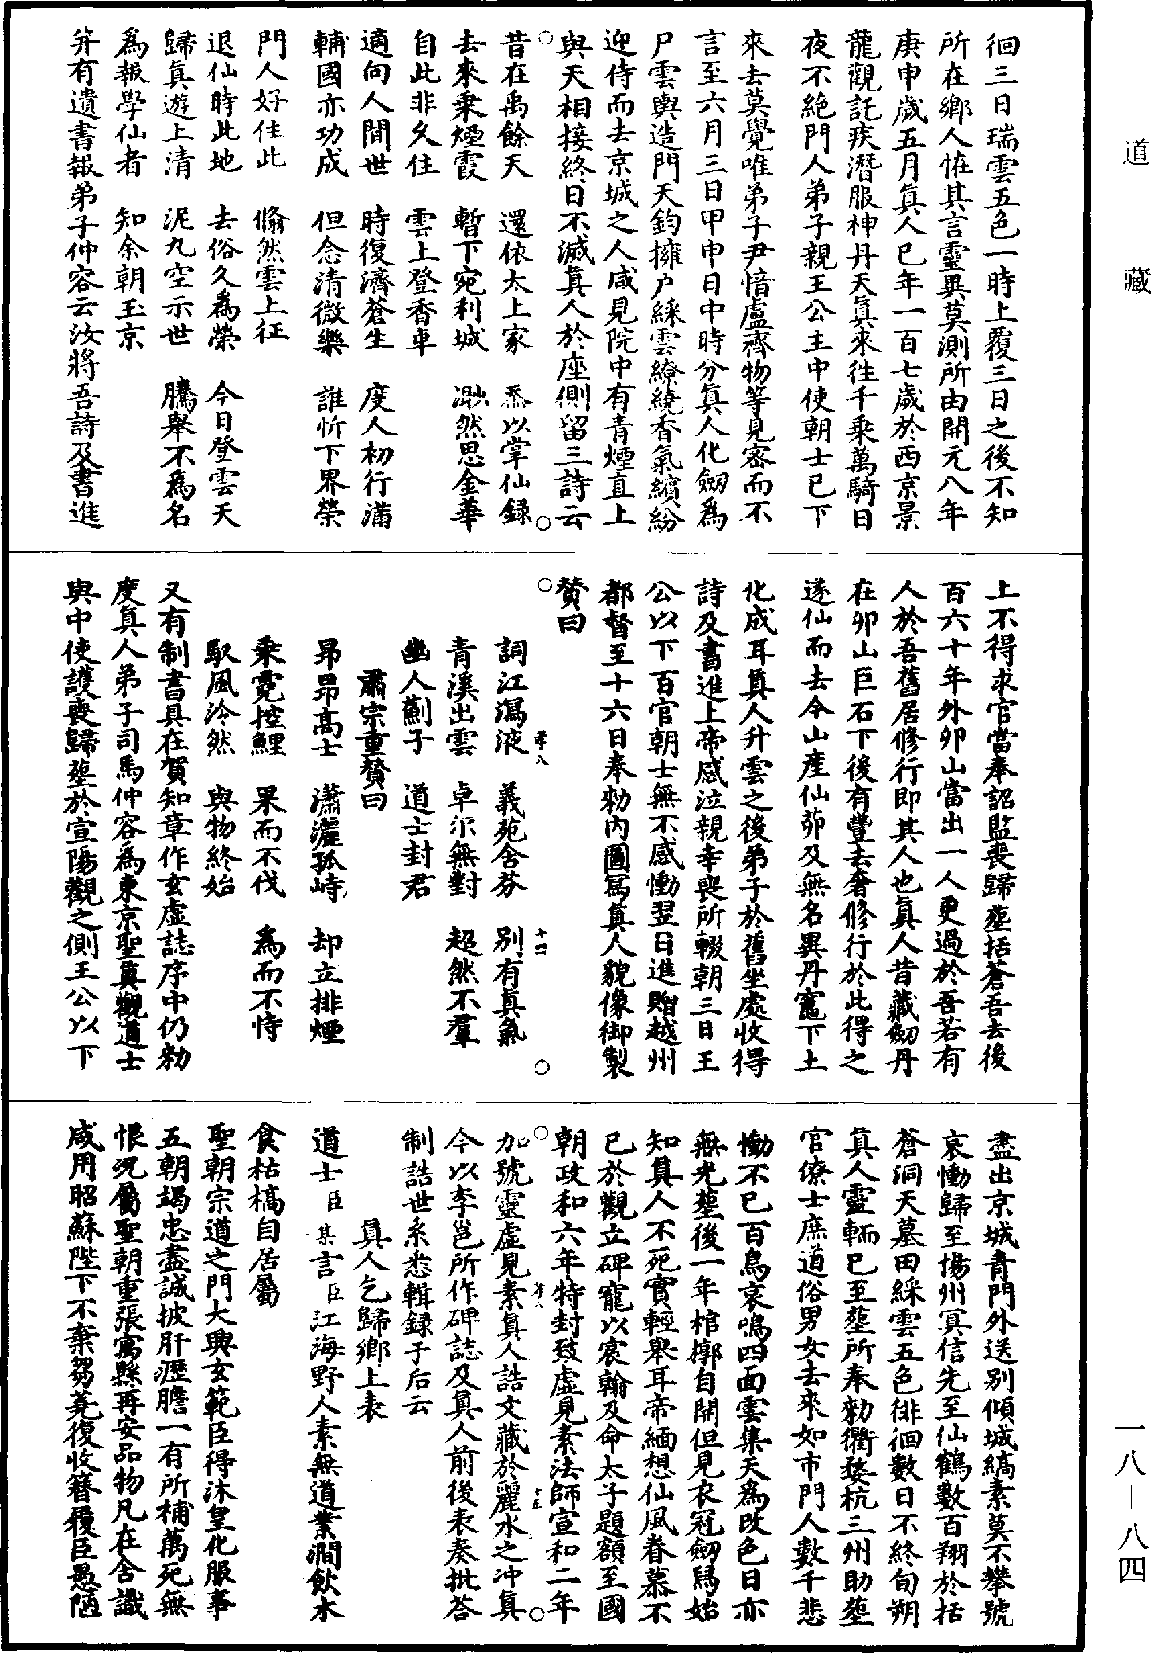 道藏
一八—八四
徊三日瑞雲五色一時上覆三日之後不知
所在鄉人恠其言靈異莫測所由開元八年
庚申歲五月真人巳年一百七歲於西京景
龍觀託疾潛服神丹天真來往千乘萬騎日
夜不絶門人弟子親王公主中使朝士已下
來去莫覺唯弟子尹愔盧齊物等見密而不
言至六月三日甲申日中時分真人化劒為
尸雲輿造門天鈞擁户綵雲繚繞香氣繽紛
迎侍而去京城之人咸見院中有青煙直上
與天相接終日不滅真人於座側留三詩云
昔在禹餘天　還依太上家　忝以掌仙録
去來乘煙霞　暫下宛利城　渺然思金華
自此非久住　雲上登香車
適向人間世　時復濟蒼生　度人初行滿
輔國亦功成　但念清微樂　誰忻下界榮
門人好住此　翛然雲上征
退仙時此地　去俗久為榮　今日登雲天
歸真遊上清　泥丸空示世　騰舉不為名
為報學仙者　知余朝玉京
并有遺書報弟子仲容云汝將吾詩及書進
上不得求官當奉詔監喪歸葬括蒼吾去後
百六十年外卯山當出一人更過於吾若有
人於吾舊居修行即其人也真人昔藏劒丹
在卯山巨石下後有豐去奢修行於此得之
遂仙而去今山産仙茆及無名異丹竈下土
化成耳真人升雲之後弟子於舊坐處收得
詩及書進上帝感泣親幸喪所輟朝三日王
公以下百官朝士無不感慟翌日進贈越州
都督至十六日奉勑內圖寫真人貌像御製
贊曰
詞江瀉液　義苑含芬　別有真氣
青溪出雲　卓尒無對　超然不羣
幽人薊子　道士封君
肅宗重贊曰
昂昂高士　瀟灑孤峙　却立排煙
乘霓控鯉　果而不伐　為而不恃
馭風泠然　與物終始
又有制書具在賀知章作玄虛誌序中仍勑
度真人弟子司馬仲容為東京聖真觀道士
與中使護喪歸葬於宣陽觀之側王公以下
盡出京城青門外送別傾城縞素莫不攀號
哀慟歸至楊州冥信先至仙鶴數百翔於括
蒼洞天墓田綵雲五色徘徊數日不終旬朔
真人靈輀已至葬所奉勑衢婺杭三州助葬
官僚士庶道俗男女去來如市門人數千悲
慟不已百鳥哀鳴四面雲集天為改色日亦
無光葬後一年棺槨自開但見衣冠劒舄始
知真人不死實輕舉耳帝緬想仙風眷慕不
已於觀立碑寵以宸翰及命太子題額至國
朝政和六年特封致虛見素法師宣和二年
加號靈虛見素真人誥文藏於麗水之沖真
今以李邕所作碑誌及真人前後表奏批荅
制誥世系悉輯録于后云
真人乞歸鄉上表
道士臣某言臣江海野人素無道業澗飲木
食枯槁自居屬
聖朝宗道之門大興玄範臣得沐皇化服事
五朝竭忠盡誠披肝瀝膽一有所補萬死無
恨況屬聖朝重張寓縣再安品物凡在含識
咸用昭蘇陛下不棄芻蕘復收簪履臣愚陋